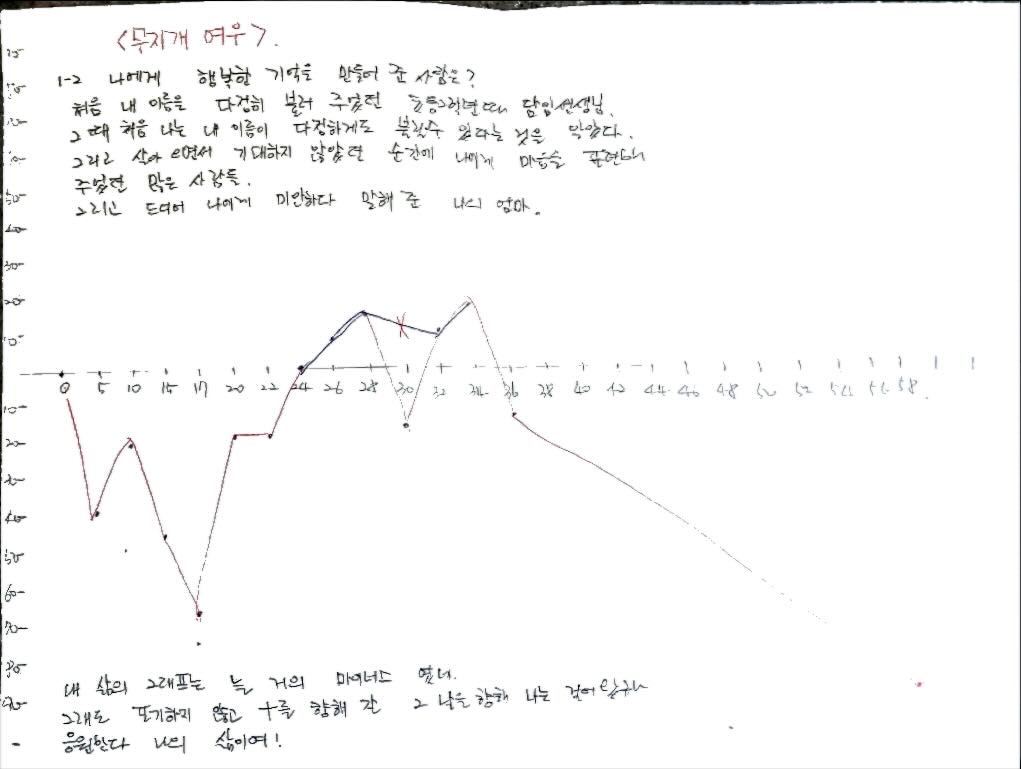 <무지개 여우>.
1-2 나에게 행복한 기억을 만들어 준 사람은?
처음 내 이름을 다정히 불러 주었던 초등2학년때 담임선생님.
그때 처음 나는 내 이름이 다정하게도 불릴수 있다는 것을 알았다.
그리고 살아오면서 기대하지 않았던 순간에 나에게 마음을 표현해
주었던 많은 사람들.
그리고 드디어 나에게 미안하다 말해 준 나의 엄마.
40
30
20
10
0 5 10 15 17 20 22 24 26 28 30 32 34 36 38 40 42 44 46 48 50 52 54 56 58
10
20
30
40
50
60
70
80
90
내 삶의 그래프는 늘 거의 마이너스 였네.
그래도 포기하지 않고 +를 향해 간 그 날을 향해 나는 걸어왔구나
응원한다 나의 삶이여!